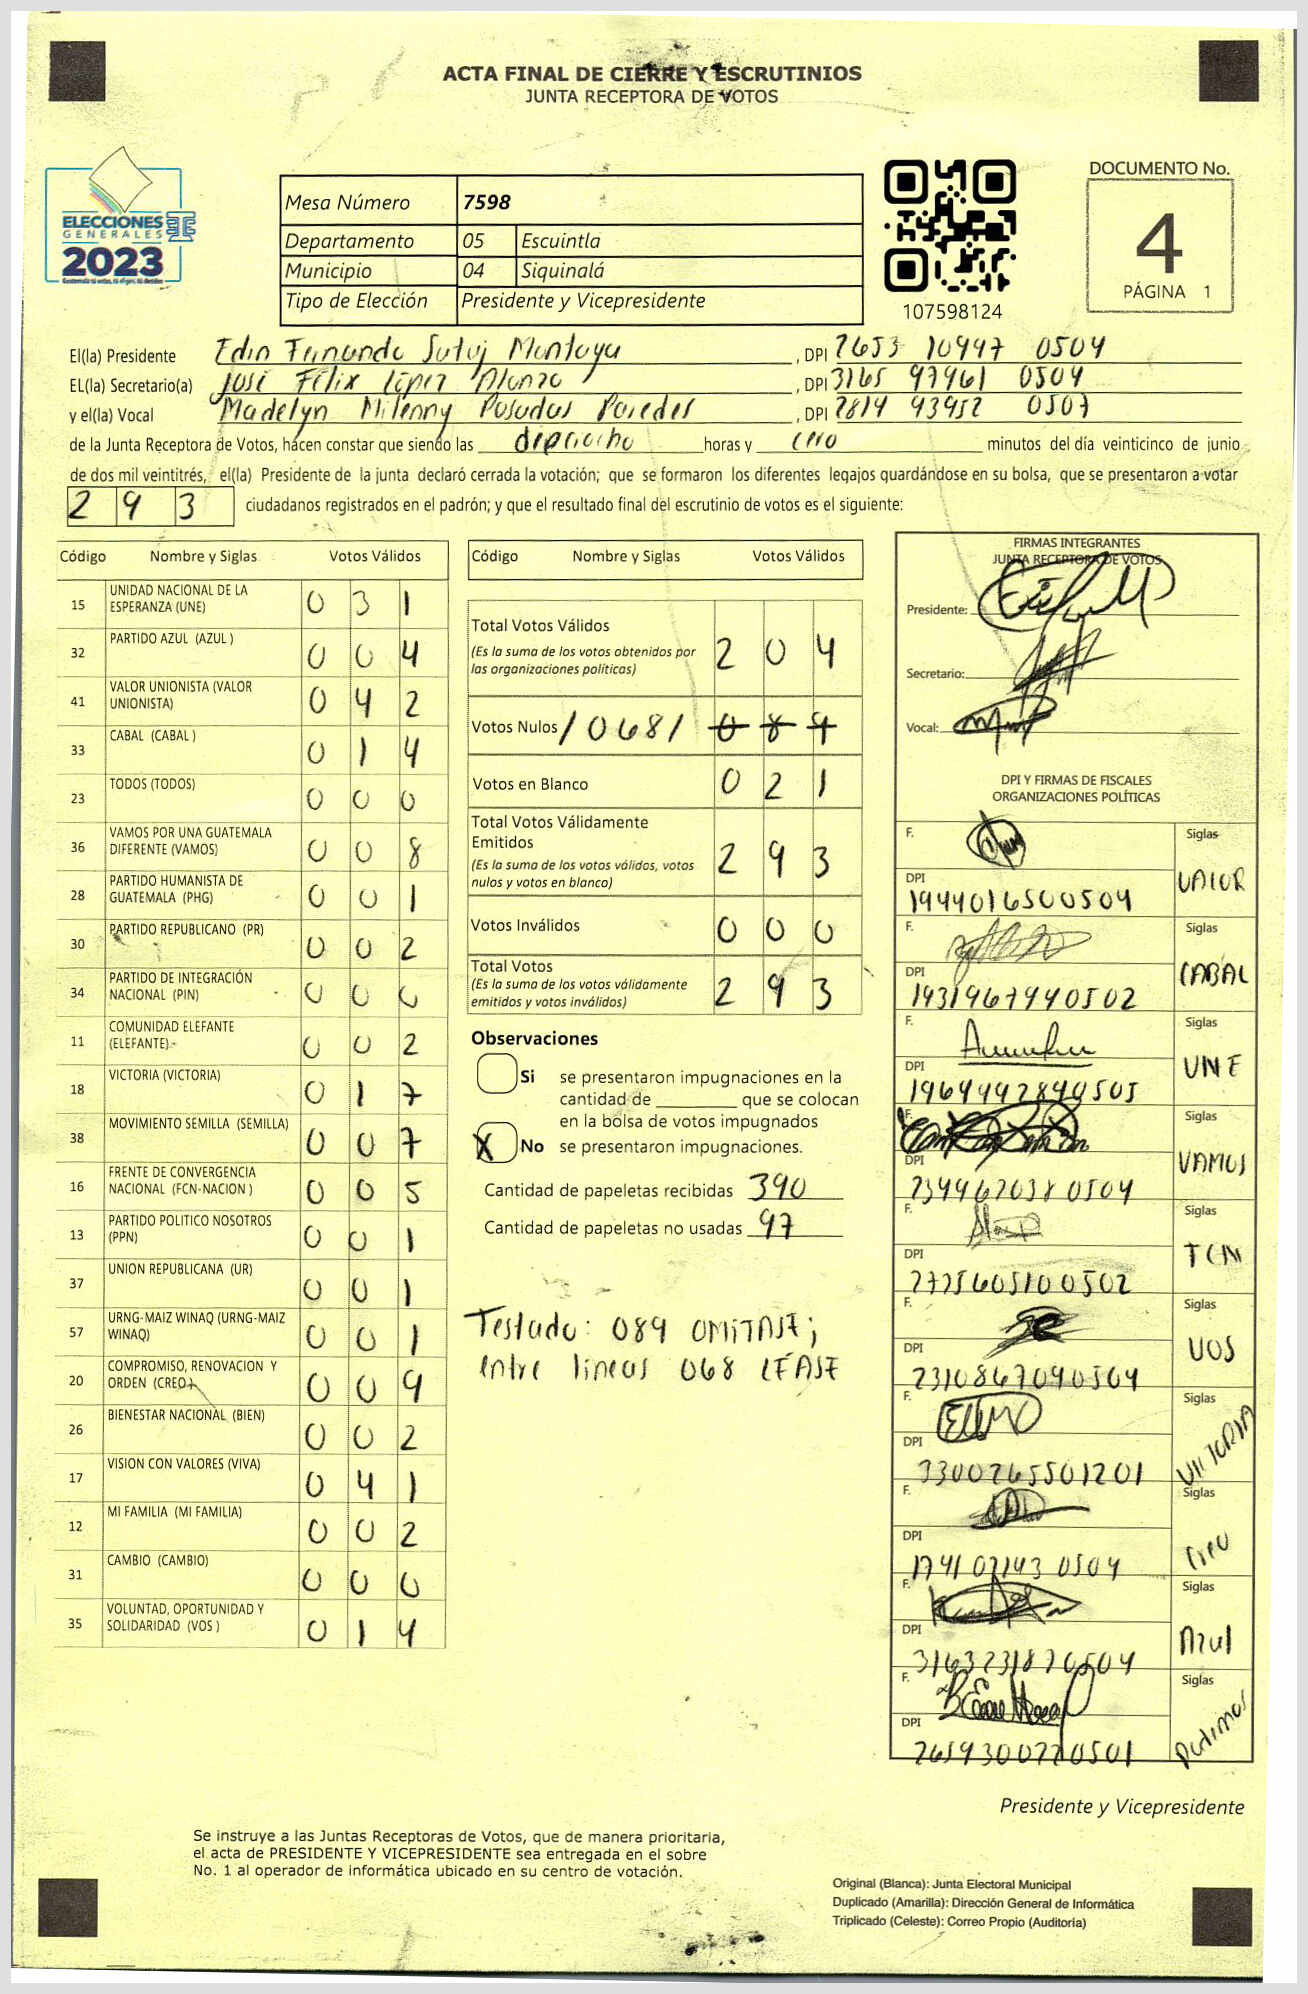 ACTA FINAL DE CIERRE Y ESCRUTINIOS
JUNTA RECEPTORA DE VOTOS
ELECCIONES
GENERALES
2023
Mesa Número 7598
Departamento 05 Escuintla
Municipio 04 Siquinalá
Tipo de Elección Presidente y Vicepresidente
107598124
DOCUMENTO No.
4
PÁGINA 1
El(la) Presidente Edin Fernando Sutuj Montoya, DPI 2653 10997 0504
EL(la) Secretario(a) José Félix López Alonzo, DPI 3165 97961 0504
y el(la) Vocal Madelyn Milenny Posadas Paredes, DPI 2814 93952 0507
de la Junta Receptora de Votos, hacen constar que siendo las dieciocho horas y cero minutos del día veinticinco de junio
de dos mil veintitrés, el(la) Presidente de la junta declaró cerrada la votación; que se formaron los diferentes legajos quardándose en su bolsa, que se presentaron a votar
293 ciudadanos registrados en el padrón; y que el resultado final del escrutinio de votos es el siguiente:
Código Nombre y Siglas Votos Válidos
15 UNIDAD NACIONAL DE LA ESPERANZA (UNE) 0 3 1
32 PARTIDO AZUL (AZUL ) 0 0 4
41 VALOR UNIONISTA (VALOR UNIONISTA) 0 4 2
33 CABAL (CABAL ) 0 1 4
23 TODOS (TODOS) 0 0 0
36 VAMOS POR UNA GUATEMALA DIFERENTE (VAMOS) 0 0 8
28 PARTIDO HUMANISTA DE GUATEMALA (PHG) 0 0 1
30 PARTIDO REPUBLICANO (PR) 0 0 2
34 PARTIDO DE INTEGRACIÓN NACIONAL (PIN) 0 0 0
11 COMUNIDAD ELEFANTE (ELEFANTE) 0 0 2
18 VICTORIA (VICTORIA) 0 1 7
38 MOVIMIENTO SEMILLA (SEMILLA) 0 0 7
16 FRENTE DE CONVERGENCIA NACIONAL (FCN-NACION ) 0 0 5
13 PARTIDO POLITICO NOSOTROS (PPN) 0 0 1
37 UNION REPUBLICANA (UR) 0 0 1
57 URNG-MAIZ WINAQ (URNG-MAIZ WINAQ) 0 0 1
20 COMPROMISO, RENOVACION Y ORDEN (CREO ) 0 0 9
26 BIENESTAR NACIONAL (BIEN) 0 0 2
17 VISION CON VALORES (VIVA) 0 4 1
12 MI FAMILIA (MI FAMILIA) 0 0 2
31 CAMBIO (CAMBIO) 0 0 0
35 VOLUNTAD, OPORTUNIDAD Y SOLIDARIDAD (VOS ) 0 1 4
Código Nombre y Siglas Votos Válidos
Total Votos Válidos 2 0 4
(Es la suma de los votos obtenidos por
las organizaciones políticas)
Votos Nulos /068/ 0 8 9
Votos en Blanco 0 2 1
Total Votos Válidamente
Emitidos 2 9 3
(Es la suma de los votos válidos, votos
nulos y votos en blanco)
Votos Inválidos 0 0 0
Total Votos 2 9 3
(Es la suma de los votos válidamente
emitidos y votos inválidos)
Observaciones
Si se presentaron impugnaciones en la
cantidad de ________ que se colocan
en la bolsa de votos impugnados
X No se presentaron impugnaciones.
Cantidad de papeletas recibidas 390
Cantidad de papeletas no usadas 97
Testado: 089 OMITASE;
entre lineas 068 LEASE
FIRMAS INTEGRANTES
JUNTA RECEPTORA DE VOTOS
Presidente:
Secretario:
Vocal:
DPI Y FIRMAS DE FISCALES
ORGANIZACIONES POLÍTICAS
F. Siglas
DPI 1944016500504 VALOR
F. Siglas
DPI 1931967940502 CABAL
F. Siglas
DPI 1964992840505 UNE
F. Siglas
DPI 2344620380504 VAMOS
F. Siglas
DPI 2725605100502
F. Siglas
DPI 2310867090504 VOS
F. Siglas
DPI 3300265501201 VICTORIA
F. Siglas
DPI 1741071430504 Creo
F. Siglas
DPI 3163231870504 Azul
F. Siglas
DPI 2659300770501 Podemos
Presidente y Vicepresidente
Se instruye a las Juntas Receptoras de Votos, que de manera prioritaria,
el acta de PRESIDENTE Y VICEPRESIDENTE sea entregada en el sobre
No. 1 al operador de informática ubicado en su centro de votación.
Original (Blanca): Junta Electoral Municipal
Duplicado (Amarilla): Dirección General de Informática
Triplicado (Celeste): Correo Propio (Auditoría)